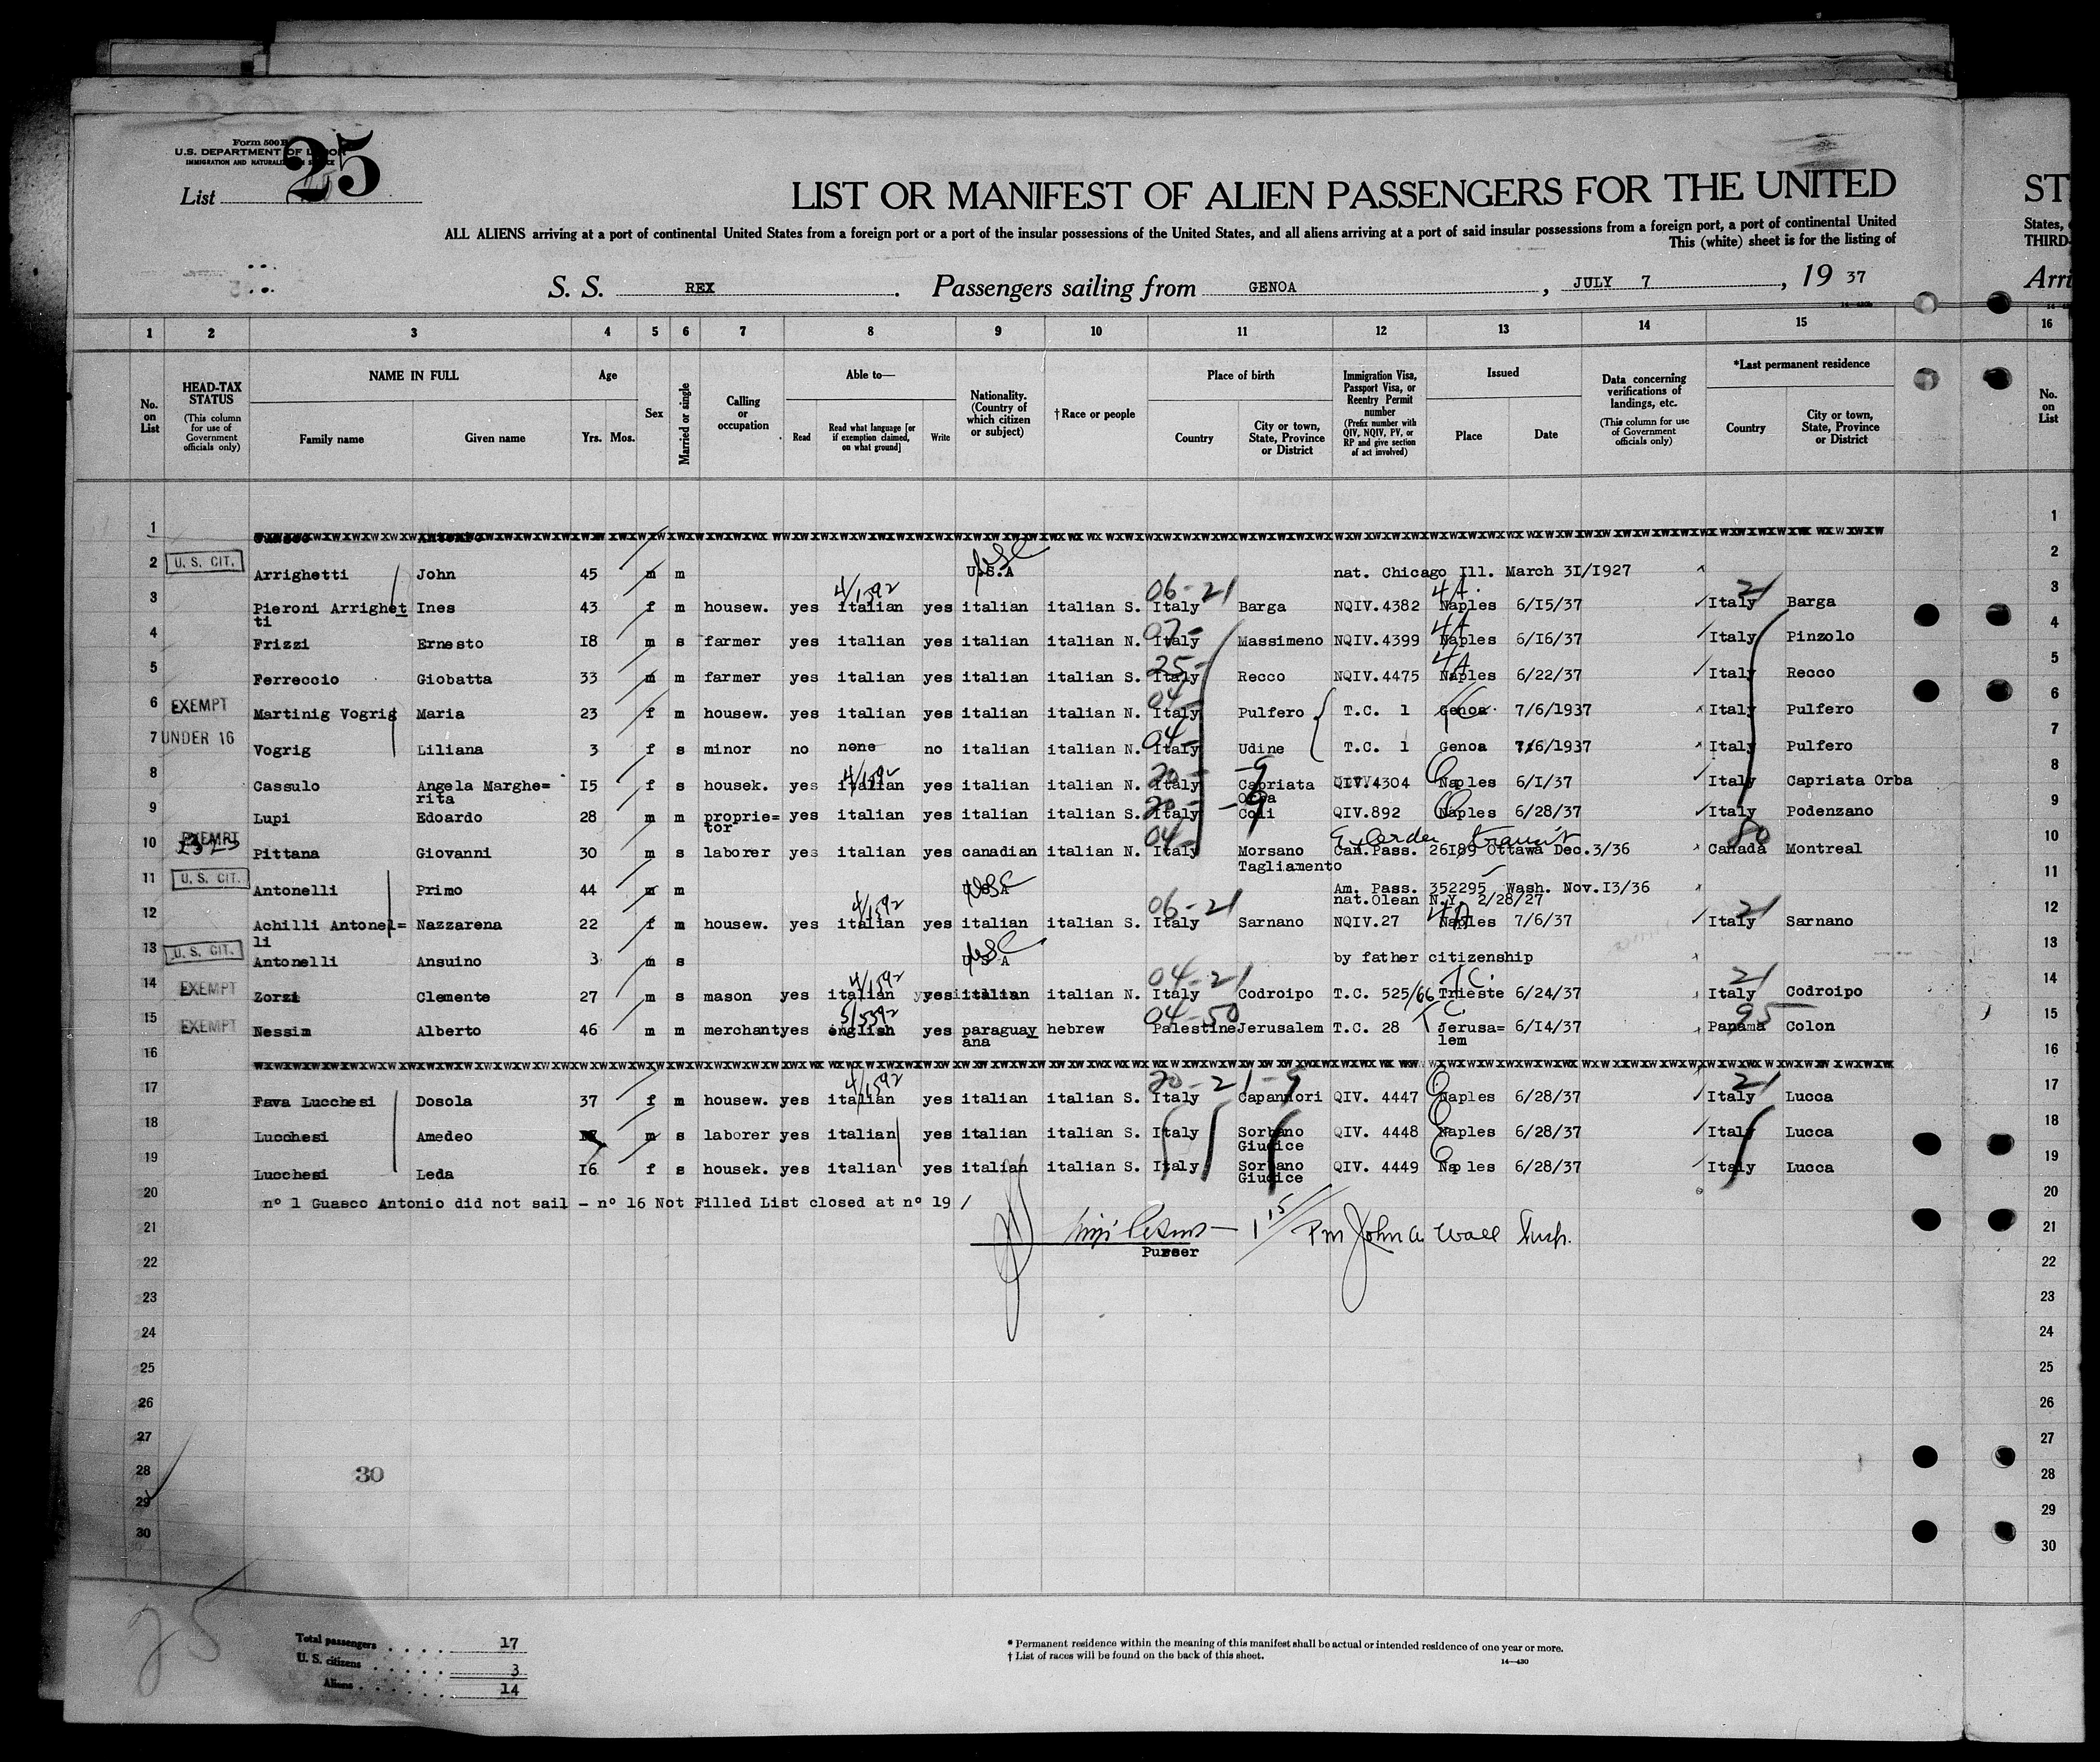 Form 500B
U.S. DEPARTMENT OF LABOR
IMMIGRATION AND NATURALIZATION SERVICE
List 25
LIST OR MANIFEST OF ALIEN PASSENGERS FOR THE UNITED
ST
ALL ALIENS arriving at a port of continental United States from a foreign port or a port of the insular possessions of the United States, and all aliens arriving at a port of said insular possessions from a foreign port, a port of continental United
States,
This (white) sheet is for the listing of
THIRD-
S. S. REX. Passengers sailing from GENOA, JULY 7, 19 37
Arri
1 2 3 4 5 6 7 8 9 10 11 12 13 14 15 16
No. on List
HEAD-TAX STATUS (This column for use of Government officials only)
NAME IN FULL Family name Given name
Age Yrs. Mos.
Sex
Married or single
Calling or occupation
Able to— Read Read what language [or if exemption claimed, on what ground] Write
Nationality. (Country of which citizen or subject)
† Race or people
Place of birth Country City or town, State, Province or District
Immigration Visa, Passport Visa, or Reentry Permit number (Prefix number with QIV, NQIV, PV, or RP and give section of act involved)
Issued Place Date
Data concerning verifications of landings, etc. (This column for use of Government officials only)
*Last permanent residence Country City or town, State, Province or District
No. on List
1 1
2 U. S. CIT. Arrighetti John 45 m m U.S.A USC nat. Chicago Ill. March 31/1927 2
3 Pieroni Arrighetti Ines 43 f m housew. yes italian 4/1592 yes italian italian S. Italy 06-21 Barga NQIV.4382 Naples 4A. 6/15/37 Italy 21 Barga 3
4 Frizzi Ernesto 18 m s farmer yes italian yes italian italian N. Italy 07- Massimeno NQIV.4399 Naples 4A 6/16/37 Italy Pinzolo 4
5 Ferreccio Giobatta 33 m m farmer yes italian yes italian italian S. Italy 25- Recco NQIV.4475 Naples 4A 6/22/37 Italy Recco 5
6 EXEMPT Martinig Vogrig Maria 23 f m housew. yes italian yes italian italian N. Italy 04- Pulfero T.C. 1 Genoa 7/6/1937 Italy Pulfero 6
7 UNDER 16 Vogrig Liliana 3 f s minor no none no italian italian N. Italy 04- Udine T.C. 1 Genoa 7/6/1937 Italy Pulfero 7
8 Cassulo Angela Marghe=rita 15 f s housek. yes italian 4/1592 yes italian italian N. Italy 20- -9 Capriata Orba QIV.4304 Naples 6/1/37 Italy Capriata Orba 8
9 Lupi Edoardo 28 m m proprie=tor yes italian yes italian italian S. Italy 20- -9 Coli QIV.892 Naples 6/28/37 Italy Podenzano 9
10 EXEMPT Pittana Giovanni 30 m s laborer yes italian yes canadian italian N. Italy 04- Morsano Tagliamento Can.Pass. 26189 Ottawa Dec.3/36 transit Canada 80 Montreal 10
11 U. S. CIT. Antonelli Primo 44 m m U S A USC Am. Pass. 352295 Wash. Nov.13/36 nat.Olean N.Y. 2/28/27 11
12 Achilli Antonel=li Nazzarena 22 f m housew. yes italian 4/1592 yes italian italian S. Italy 06-21 Sarnano NQIV.27 Naples 4A 7/6/37 Italy 21 Sarnano 12
13 U. S. CIT. Antonelli Ansuino 3 m s U S A USC by father citizenship 13
14 EXEMPT Zorzi Clemente 27 m s mason yes italian 4/1592 yes italian italian N. Italy 04-21 Codroipo T.C. 525/66 Trieste TC. 6/24/37 Italy 21 Codroipo 14
15 EXEMPT Nessim Alberto 46 m m merchant yes english 5/5592 yes paraguayana hebrew Palestine 04-50 Jerusalem T.C. 28 TC. Jerusa=lem 6/14/37 Panama 95 Colon 15
16 16
17 Fava Lucchesi Dosola 37 f m housew. yes italian 4/1592 yes italian italian S. Italy 20-21-9 Capannori QIV. 4447 Naples 6/28/37 Italy 21 Lucca 17
18 Lucchesi Amedeo m s laborer yes italian yes italian italian S. Italy Sorbano Giudice QIV. 4448 Naples 6/28/37 Italy Lucca 18
19 Lucchesi Leda 16 f s housek. yes italian yes italian italian S. Italy Sorbano Giudice QIV. 4449 Naples 6/28/37 Italy Lucca 19
20 nº 1 Guasco Antonio did not sail - nº 16 Not Filled List closed at nº 19 / 20
21 1 15/ Pm John A. Wall Insp. 21
Purser
22 22
23 23
24 24
25 25
26 26
27 27
28 30 28
29 29
30 30
25
Total passengers 17
U. S. citizens 3
Aliens 14
* Permanent residence within the meaning of this manifest shall be actual or intended residence of one year or more.
† List of races will be found on the back of this sheet.
14—430